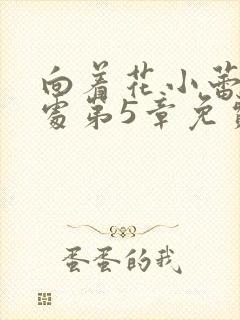 向着花小蕾
处第5章免
蛋蛋的我